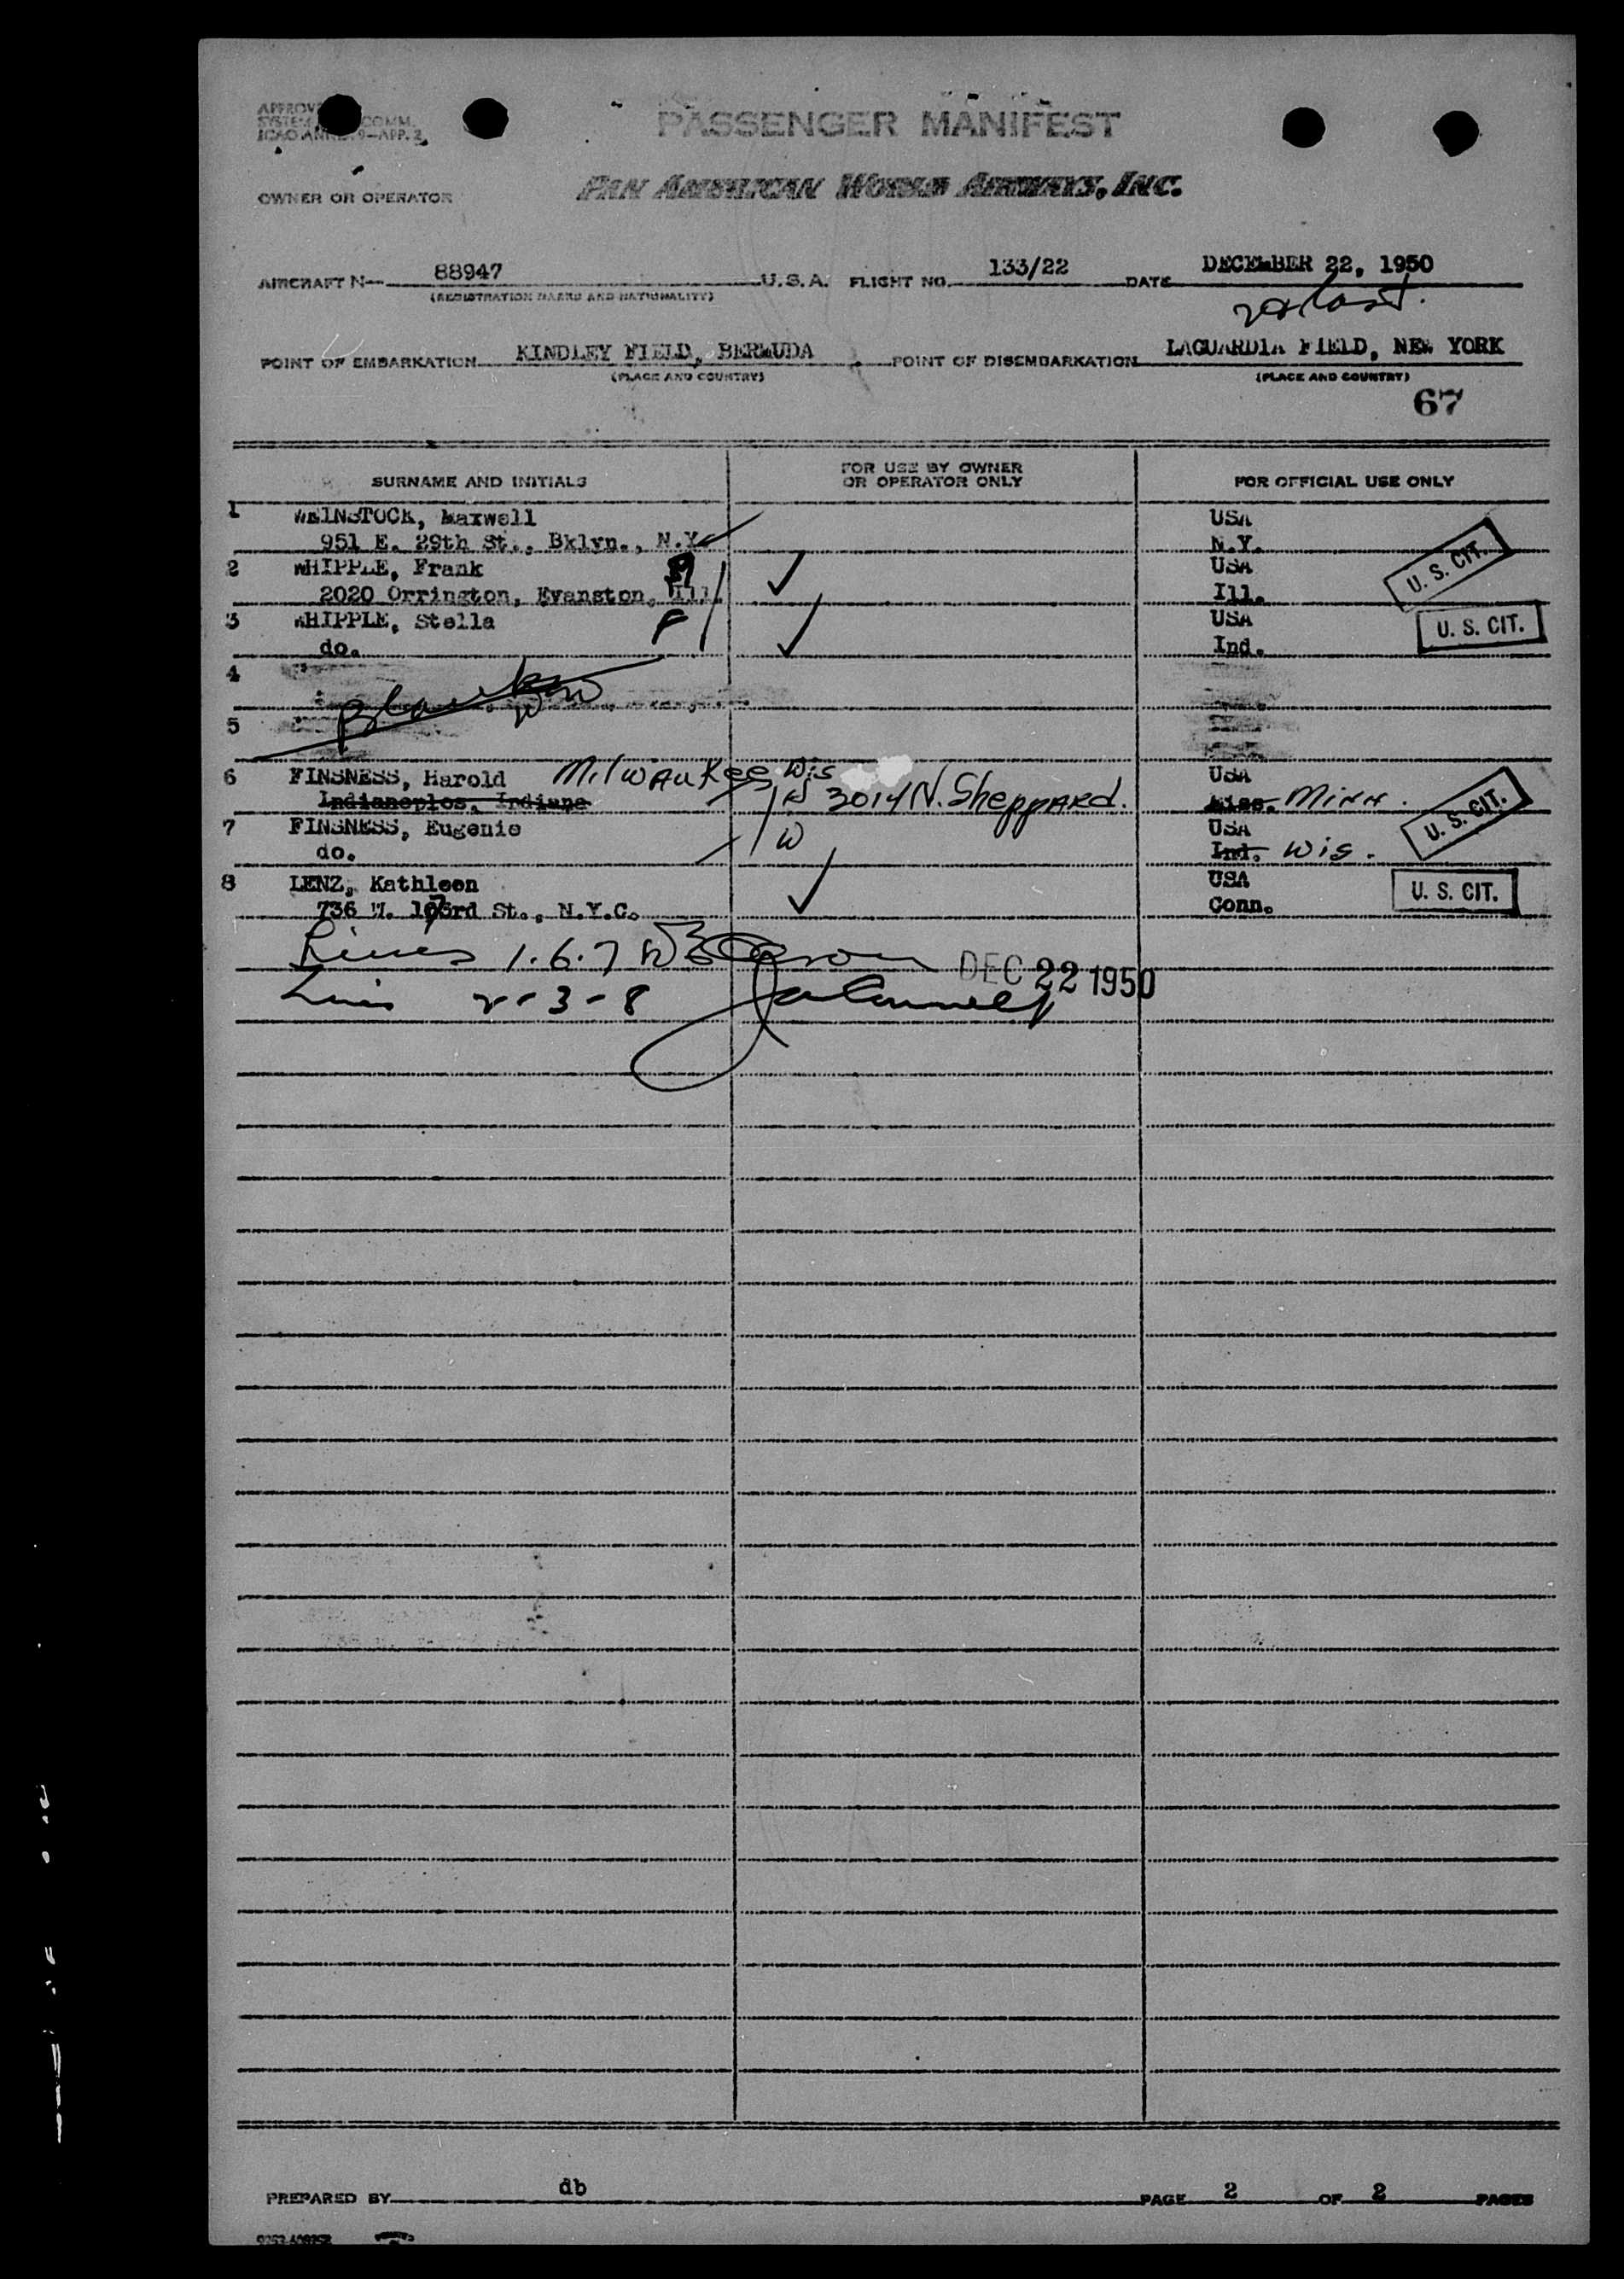 PASSENGER MANIFEST
ICAO ANNEX 9—APP. 2
OWNER OR OPERATOR
PAN AMERICAN WORLD AIRWAYS, INC.
AIRCRAFT N— 88947 U.S.A. FLIGHT NO. 133/22 DATE DECEMBER 22, 1950
(REGISTRATION MARKS AND NATIONALITY)
POINT OF EMBARKATION KINDLEY FIELD, BERMUDA POINT OF DISEMBARKATION LAGUARDIA FIELD, NEW YORK
(PLACE AND COUNTRY) (PLACE AND COUNTRY)
67
SURNAME AND INITIALS FOR USE BY OWNER OR OPERATOR ONLY FOR OFFICIAL USE ONLY
1 WEINSTOCK, Maxwell USA
951 E. 29th St., Bklyn., N.Y. N.Y.
2 WHIPPLE, Frank USA U. S. CIT.
2020 Orrington, Evanston, Ill. Ill.
3 WHIPPLE, Stella F USA U. S. CIT.
do. Ind.
4
Blank
5
6 FINSNESS, Harold Milwaukee Wis USA
Indianoplos, Indiana W 3014 N. Sheppard. Miss. Minn.
7 FINSNESS, Eugenie W USA U. S. CIT.
do. Ind. Wis.
8 LENZ, Kathleen USA U. S. CIT.
736 W. 173rd St., N.Y.C. Conn.
Lines 1.6.7 DEC 22 1950
Lines 2-3-8
PREPARED BY db PAGE 2 OF 2 PAGES